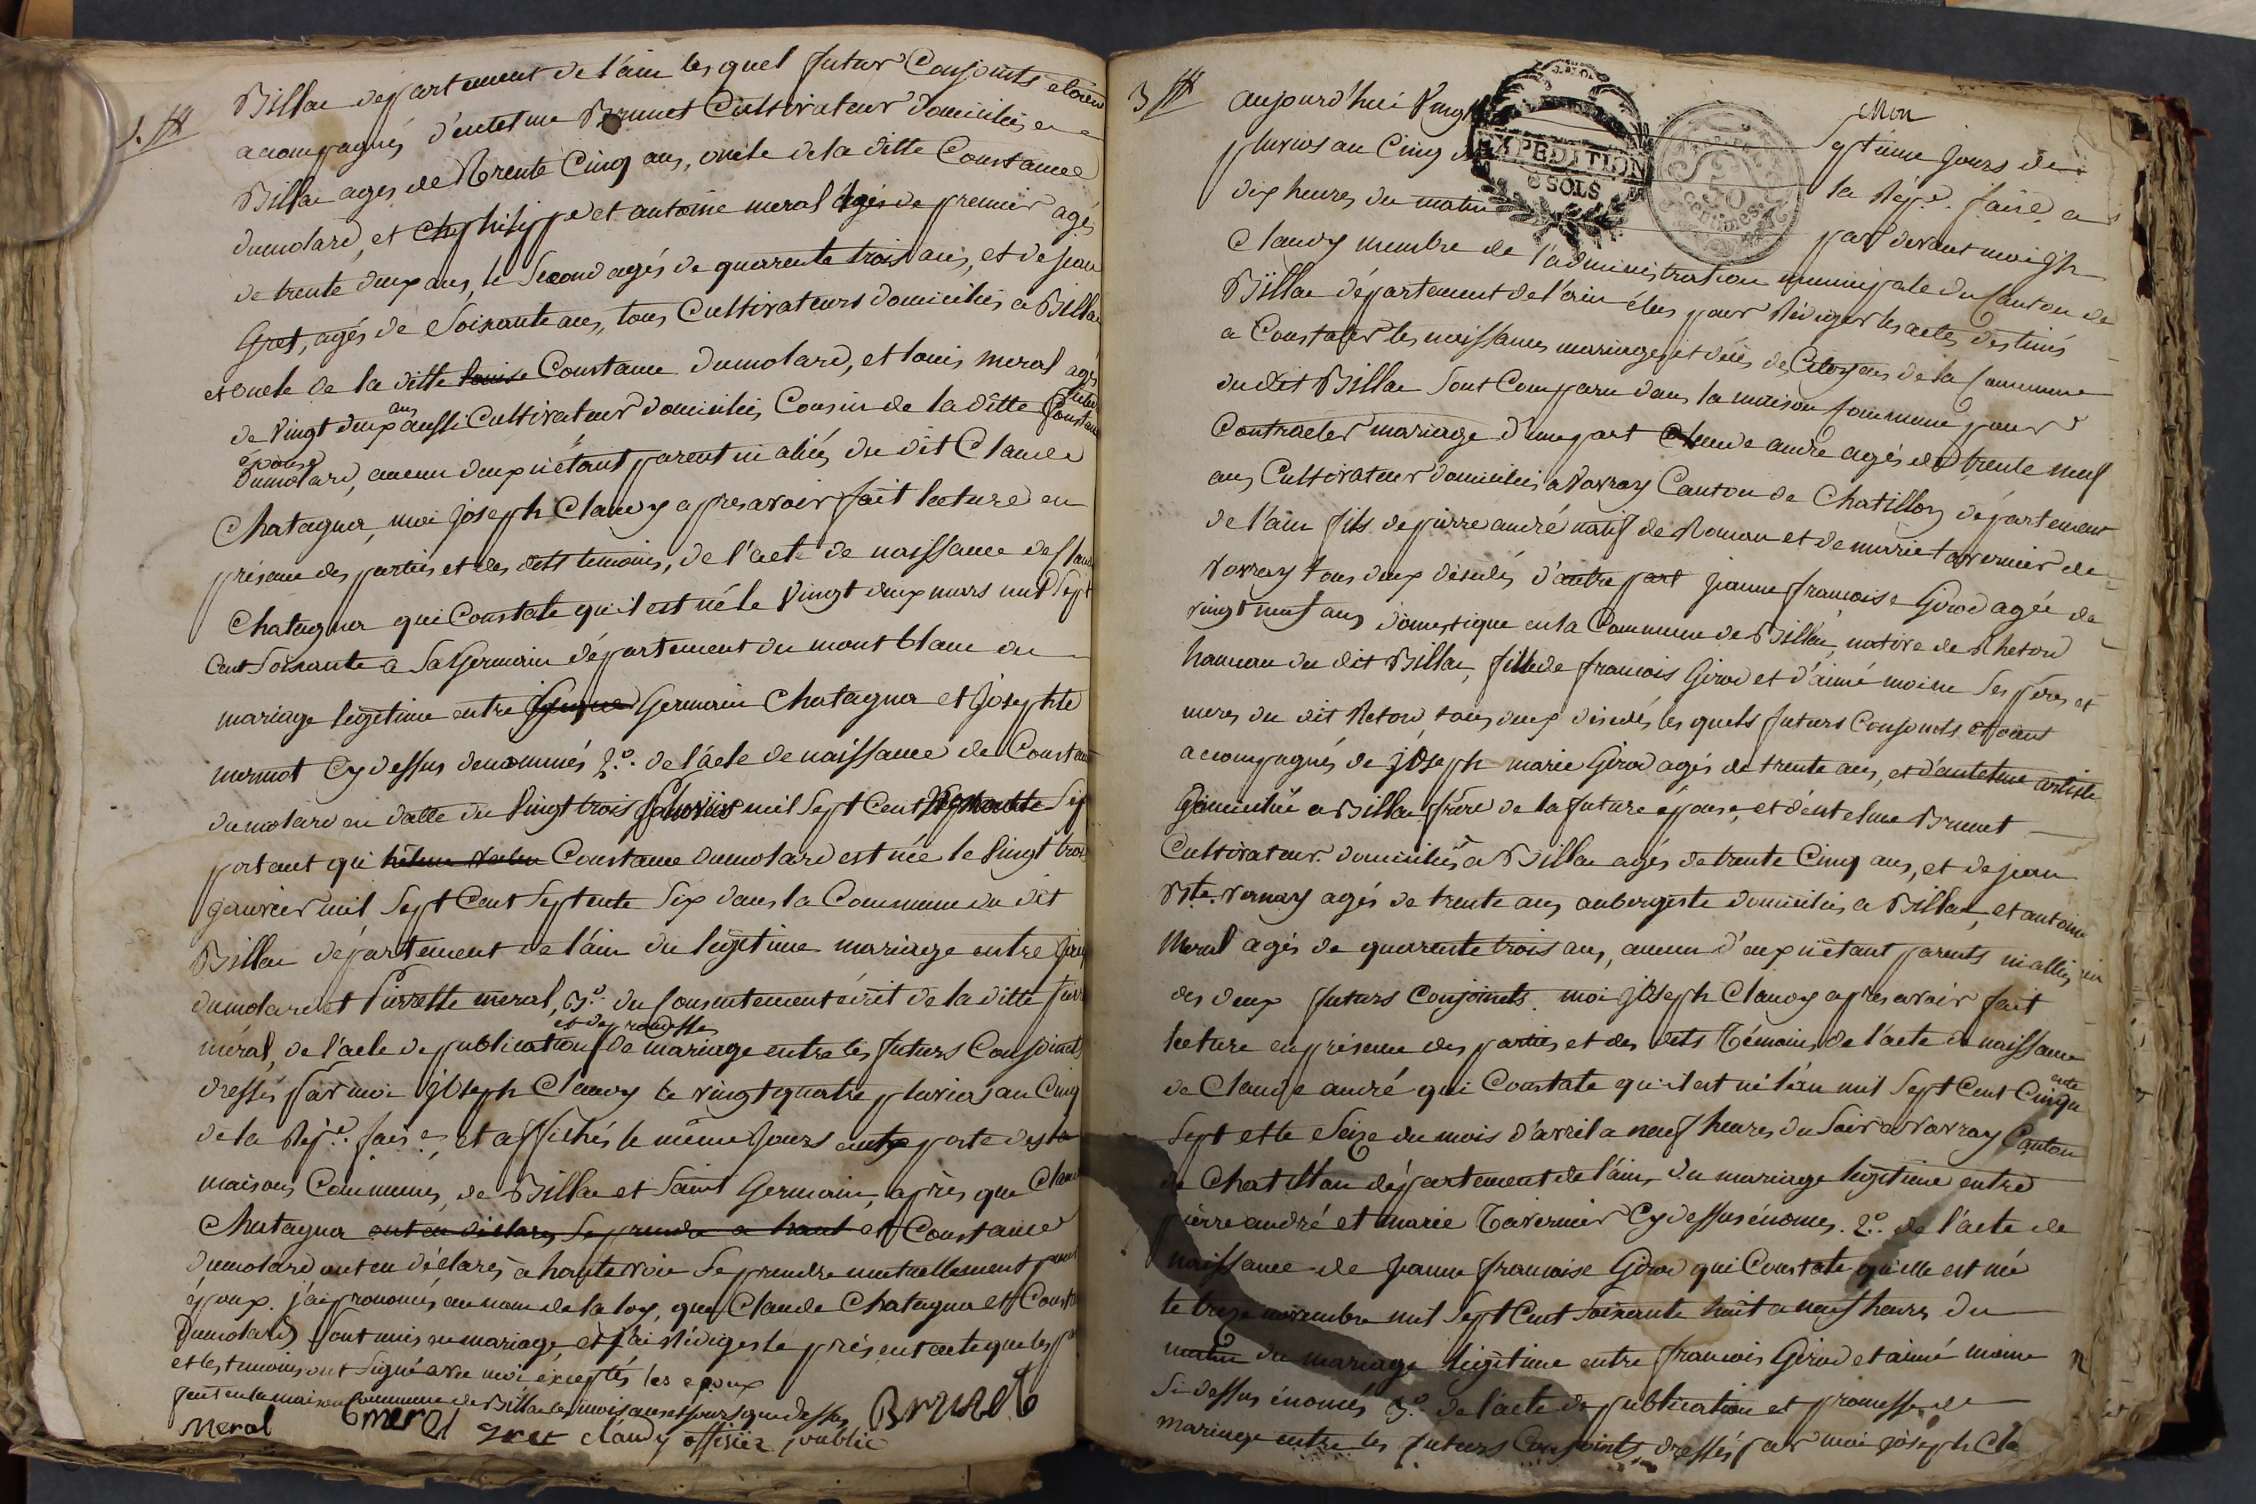 Billac departement de l'ain les quel futur Conjoints etoient
acompagnés d'entelme Brunet Cultivateur domicilies a
Billac ages de Trente Cinq ans, oncle de la ditte Constance
dumolard, et philippe et antoine meral agés de premier agés
de trente deux ans, le Second agés de quarente trois ans, et de jean
Gret, agés de Soixante ans, tous Cultivateurs domiciliés a Billac
et oncle de la ditte louise Constance dumolard, et louis meral agés
de vingt deux ans aussi Cultivateur domiciliés Cousin de la ditte future Constance
épouse
Dumolard, aucun deux n'étant parent ni aliés du dit Claude
Chatagner, moi joseph Claudy apres avoir fait lecture en
présence des parties et des dits temoins, de l'acte de naissance de Claude
Chatagner qui Constate qu'il est né le Vingt deux mars mil Sept
Cent Soixante a St Germain département du mont blanc du
mariage legitime entre Germain Chatagner et Josephte
mermot Cy dessus denommés 2.º de l'acte de naissance de Constance
dumolard en datte du Vingt trois janvier mil Sept Cent Septente Six
portant qui Constance dumolard est née le Vingt trois
janvier mil Sept Cent Septente Six dans la Commune du dit
Billac département de l'ain du legitime mariage entre
dumolard et Pierrette meral, 3.º du Consentement écrit de la ditte Pierrette
et de promesses
méral, de l'acte de publication de mariage entre les futurs Conjoints
dressés par moi Joseph Claudy le vingt quatre pluviose an Cinq
de la Rép.e fai.e, et affichés le même Jours porte des la
maisons Communes, de Billac et Saint Germain, après que Claude
Chatagner ont eu déclarer Se prendre a haut et Constance
dumolard ont eu déclarés a haute voix Se prendre mutuellement pour
époux. j'ai prononcés au nom de la loy, que Claude Chatagner et Constance
Dumolard Sont unis en mariage, et j'ai Rédiger le présent acte que les
et les temoins ont Signé avec moi éxceptés les epoux
fait en la maison Commune de Billac les mois an et jours que dessus Brunet
Meral meral Gret claudy officier public
3
aujourd'hui Vingt Septième Jours de
pluvios an Cinq de la Rép.e faise a
dix heures du matin par devant moi jh
Claudy membre de l'administration municipale du Canton de
Billac département de l'ain élus pour Rédiger les actes destinés
a Constater les naissances mariages et décès des Citoyens de la Commune
du dit Billac Sont Comparu dans la maison Commune pour
Contracter mariage d'une part Claude andre agés de trente neuf
ans Cultivateur domiciliés a Vovray Canton de Chatillon département
de l'ain fils de pierre andré natif de Roman et de marie tavernier de
Vovray tous deux décédés d'autre part jeanne francoise Girod agée de
vingt neuf ans domestique en la Commune de Billac, native de Rhetord
hameau du dit Billac, fille de francois Girod et d'aimé moine Ses péres et
meres du dit Retord tous deux décedés, les quels futurs Conjoints étoient
acompagnés de Joseph marie Girod agés de trente ans, et d'entelme artiste
domicilié a Billac frére de la future épouse, et d'entelme Brunet
Cultivateur domiciliés a Billac agés de trente Cinq ans, et de jean
Bte. Vernay agés de trente ans aubergiste domiciliés a Billac, et antoine
Meral agés de quarente trois ans, aucun d'eux n'étant parents ni alliés
des deux futurs Conjoints moi Joseph Claudy apres avoir fait
lecture en présence des parties et des dits Témoins de l'acte de naissance
de Claude andré qui Constate qu'il est né l'an mil Sept Cent Cinquente
Sept et le Seize du mois d'avril a neuf heures du Soir a Vovray Canton
de Chatillon département de l'ain, du mariage legitime entre
pierre andré et marie Tavernier Cy dessus énomes. 2.º de l'acte de
naissance de Jeanne francoise Girod qui Constate qu'elle est née
le treze novembre mil Sept Cent Soixante huit a neuf heures du
matin du mariage legitime entre francois Girod et aimé moine
Si dessus énomés 3.º de l'acte de publication et promesse de
mariage entre les futurs Conjoints dressés par moi joseph Cla
EXPEDITION
6 SOLS
50
Centimes